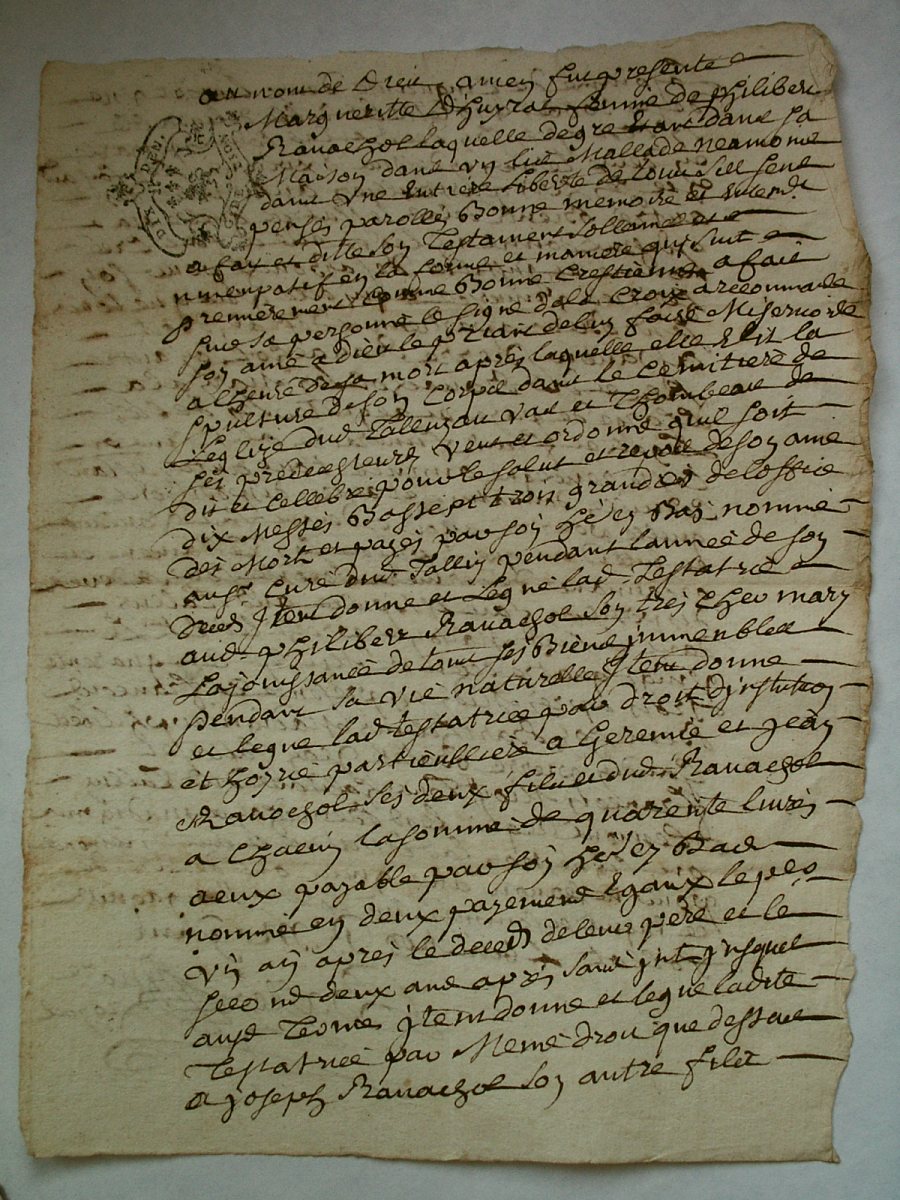 au nom de Dieu amen fut presente
Margueritte Dhurral femme de philibert
Ravachol laquelle de gre estant dans sa
Maison dans un lit Mallade neamoins
dans une entiere Liberte de tous ses sens
pensés parolles Bonne memoire et entend.t
a fait et ditte son Testament sollamel et
nmenpatif en la forme et maniere qui suit
premierement comme Bonne Crestienne a fait
sur sa personne le signe de la Croix a recommandé
son ame a dieu le priant de luy faire Misericorde
a lheure de sa mort apres laquelle elle Elit la
sepulture de son Corps dans le Cemitiere de
Leglize dud. au vas et Thombeau de
ses predecesseurs veut et ordonne quil soit
dit et cellebré pour le salut et repos de son ame
dix Messes Basse et trois grandes de loffice
des Mort et payes par son her. en Bas nommé
aus.r Curé dud. Tallin pendant lannée de son
deces Item donne et Legue lad. Testatrice
aud. philibert Ravachol son tres cher mary
La jouissance de tous ses Biens immeubles
pendant sa vie naturelle Item donne
et legue lad. testatrice par droit dinstitution
et hoyrie particulliere a Geremie et jean
Ravachol ses deux fils et dud. Ravachol
a chacun la somme de quarente livres
a eux payable par son her. en Bas
nommé en deux payement Egaux le per.
un an apres le deces de leur pere et le
second deux ans apres sans int. jusques
ausd. Termes jtem donne et legue ladite
Testatrice par Meme droit que dessus
a joseph Ravachol son autre fils